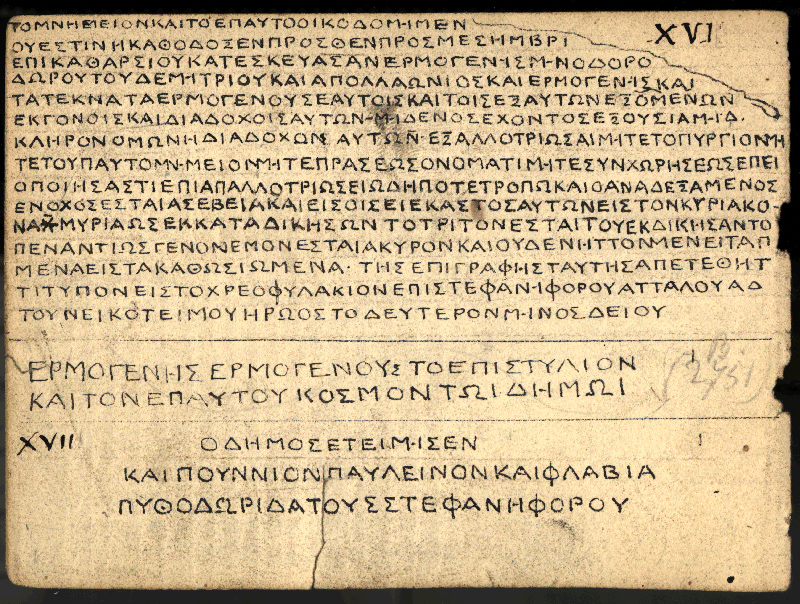 ΤΟΜΝΗΜΕΙΟΝΚΑΙΤΟΕΠΑΥΤΟΟΙΚΟΔΟΜΗΜΕΝ
XVI
ΟΥΕΣΤΙΝΗΚΑΘΟΔΟΣΕΝΠΡΟΣΘΕΝΠΡΟΣΜΕΣΗΜΒΡΙ
ΕΠΙΚΑΘΑΡΣΙΟΥΚΑΤΕΣΚΕΥΑΣΑΝΕΡΜΟΓΕΝΗΣΜΗΝΟΔΟΡΟ
ΔΩΡΟΥΤΟΥΔΕΜΗΤΡΙΟΥΚΑΙΑΠΟΛΛΑΩΝΙΟΣΚΑΙΕΡΜΟΓΕΝΗΣΚΑΙ
ΤΑΤΕΚΝΑΤΑΕΡΜΟΓΕΝΟΥΣΕΑΥΤΟΙΣΚΑΙΤΟΙΣΕΞΑΥΤΩΝΕΣΟΜΕΝΩΝ
ΕΚΓΟΝΟΙΣΚΑΙΔΙΑΔΟΧΟΙΣΑΥΤΩΝΜΗΔΕΝΟΣΕΧΟΝΤΟΣΕΞΟΥΣΙΑΜΗΔ
ΚΛΗΡΟΝΟΜΩΝΗΔΙΑΔΟΧΩΝΑΥΤΩΝΕΞΑΛΛΟΤΡΙΩΣΑΙΜΗΤΕΤΟΠΥΡΓΙΟΝΜΗ
ΤΕΤΟΥΠΑΥΤΟΜΝΗΜΕΙΟΝΜΗΤΕΠΡΑΣΕΩΣΟΝΟΜΑΤΙΜΗΤΕΣΥΝΧΩΡΗΣΕΩΣΕΠΕΙ
ΟΠΟΙΗΣΑΣΤΙΕΠΙΑΠΑΛΛΟΤΡΙΩΣΕΙΩΔΗΠΟΤΕΤΡΟΠΩΚΑΙΟΑΝΑΔΕΞΑΜΕΝΟΣ
ΕΝΟΧΟΣΕΣΤΑΙΑΣΕΒΕΙΑΚΑΙΕΙΣΟΙΣΕΙΕΚΑΣΤΟΣΑΥΤΩΝΕΙΣΤΟΝΚΥΡΙΑΚΟ
ΝΑ ΜΥΡΙΑΩΣΕΚΚΑΤΑΔΙΚΗΣΩΝΤΟΤΡΙΤΟΝΕΣΤΑΙΤΟΥΕΚΔΙΚΗΣΑΝΤΟ
ΠΕΝΑΝΤΙΩΣΓΕΝΟΝΕΜΟΝΕΣΤΑΙΑΚΥΡΟΝΚΑΙΟΥΔΕΝΗΤΤΟΝΜΕΝΕΙΤΑΠ
ΜΕΝΑΕΙΣΤΑΚΑΘΩΣΙΩΜΕΝΑ· ΤΗΣΕΠΙΓΡΑΦΗΣΤΑΥΤΗΣΑΠΕΤΕΘΗΤ
ΤΙΤΥΠΟΝΕΙΣΤΟΧΡΕΟΦΥΛΑΚΙΟΝΕΠΙΣΤΕΦΑΝΗΦΟΡΟΥΑΤΤΑΛΟΥΑΔ
ΤΟΥΝΕΙΚΟΤΕΙΜΟΥΗΡΩΟΣΤΟΔΕΥΤΕΡΟΝΜΗΝΟΣΔΕΙΟΥ
ΕΡΜΟΓΕΝΗΣΕΡΜΟΓΕΝΟΥΣΤΟΕΠΙΣΤΥΛΙΟΝ
ΚΑΙΤΟΝΕΠΑΥΤΟΥΚΟΣΜΟΝΤΩΙΔΗΜΩΙ
XVII
ΟΔΗΜΟΣΕΤΕΙΜΗΣΕΝ
ΚΑΙΠΟΥΝΝΙΟΝΠΑΥΛΕΙΝΟΝΚΑΙΦΛΑΒΙΑ
ΠΥΘΟΔΩΡΙΔΑΤΟΥΣΣΤΕΦΑΝΗΦΟΡΟΥ